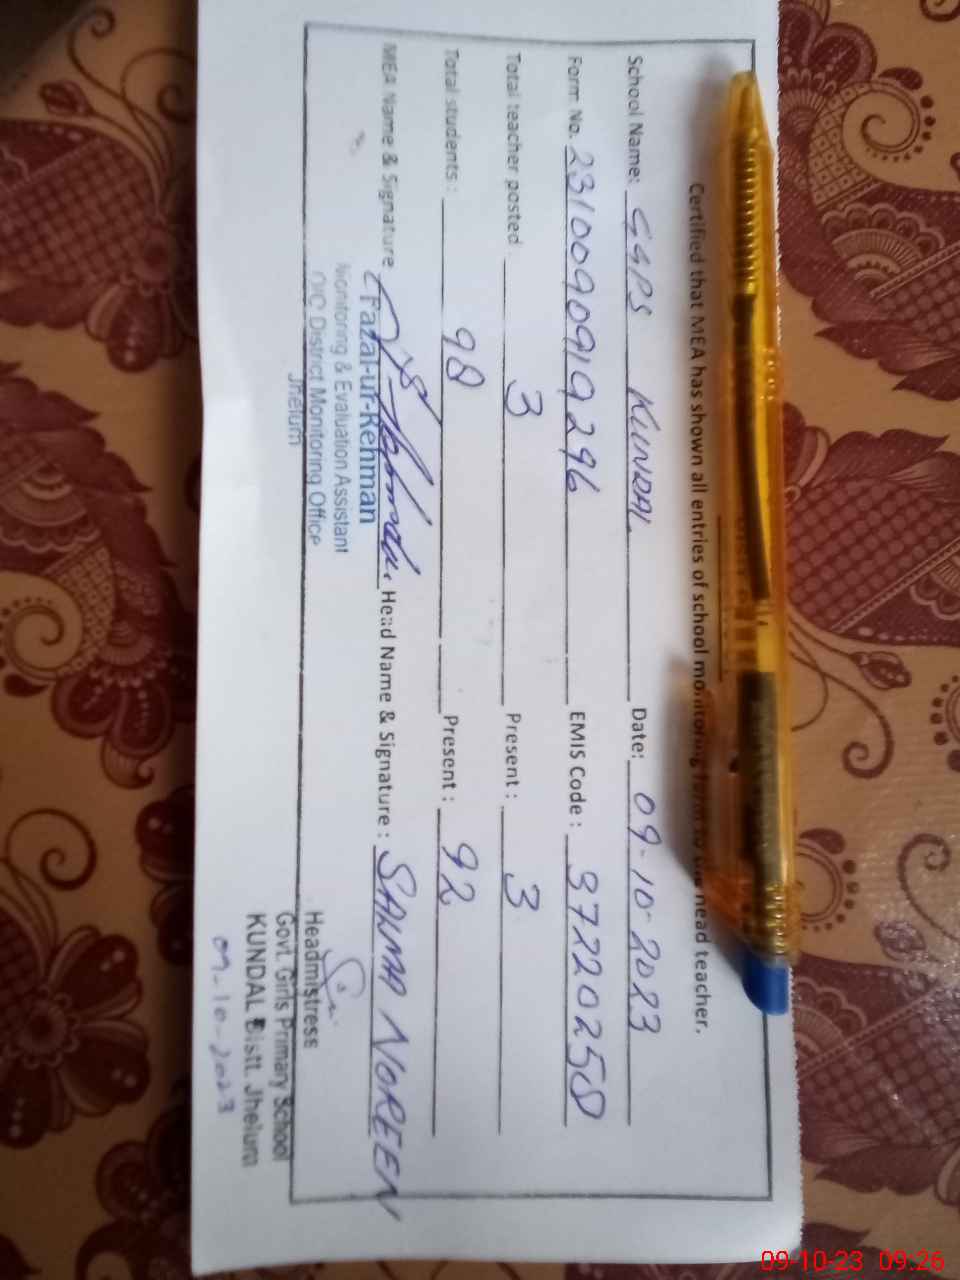 Certified that MEA has shown all entries of school monitoring form to the head teacher.
School Name: GGPS KUNDAL Date: 09-10-2023
Form No. 2310090919296 EMIS Code: 37220258
Total teacher posted 3 Present: 3
Total students: 98 Present: 92
MEA Name & Signature Head Name & Signature: SALMA NOREEN
Fazal-ur-Rehman
Monitoring & Evaluation Assistant
O/C District Monitoring Office
Jhelum
Headmistress
Govt. Girls Primary School
KUNDAL Distt. Jhelum
09-10-2023
09-10-23 09:26